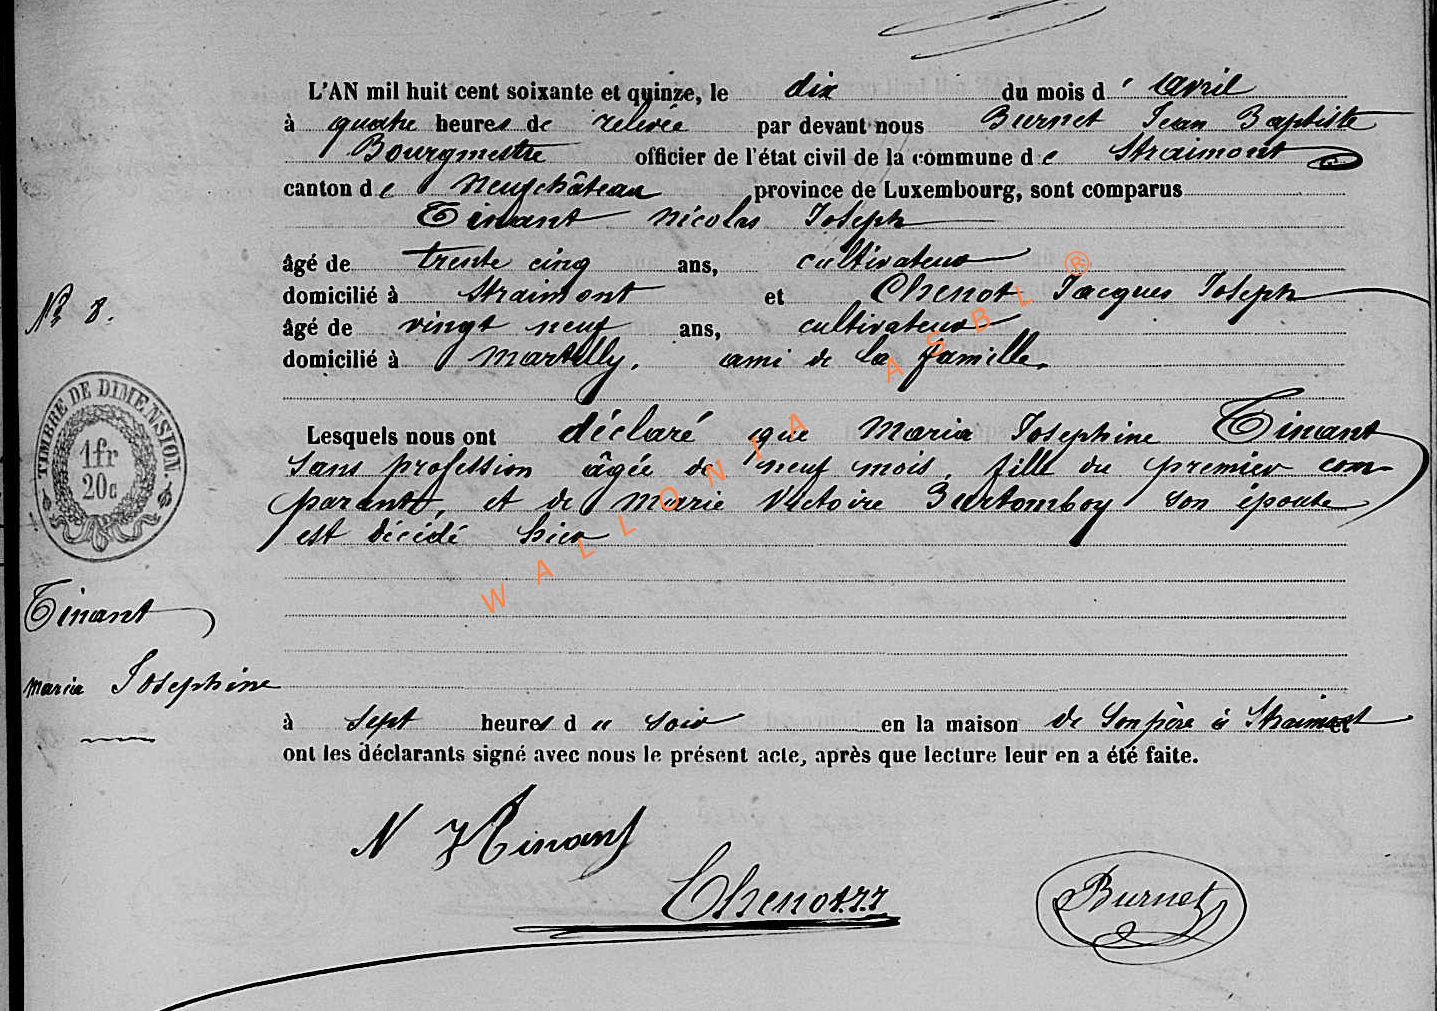 L'AN mil huit cent soixante et quinze, le dix du mois d' avril
à quatre heures de relevée par devant nous Burnet Jean Baptiste
Bourgmestre officier de l'état civil de la commune de Straimont
canton de Neufchâteau province de Luxembourg, sont comparus
Tinant Nicolas Joseph
âgé de trente cinq ans, cultivateur
domicilié à Straimont et Chenot Jacques Joseph
âgé de vingt neuf ans, cultivateur
domicilié à Martilly, ami de la famille.
Lesquels nous ont déclaré que Maria Josephine Tinant
sans profession âgée de neuf mois, fille du premier com-
parant, et de Marie Victoire Burtomboy son épouse
est décédé hier
à sept heures d u soir en la maison de son père à Straimont
ont les déclarants signé avec nous le présent acte, après que lecture leur en a été faite.
N J Tinant
Chenot J J
Burnet
No 8.
TIMBRE DE DIMENSION.
1fr
20c
Tinant
Maria Josephine
WALLONIA ASBL ®